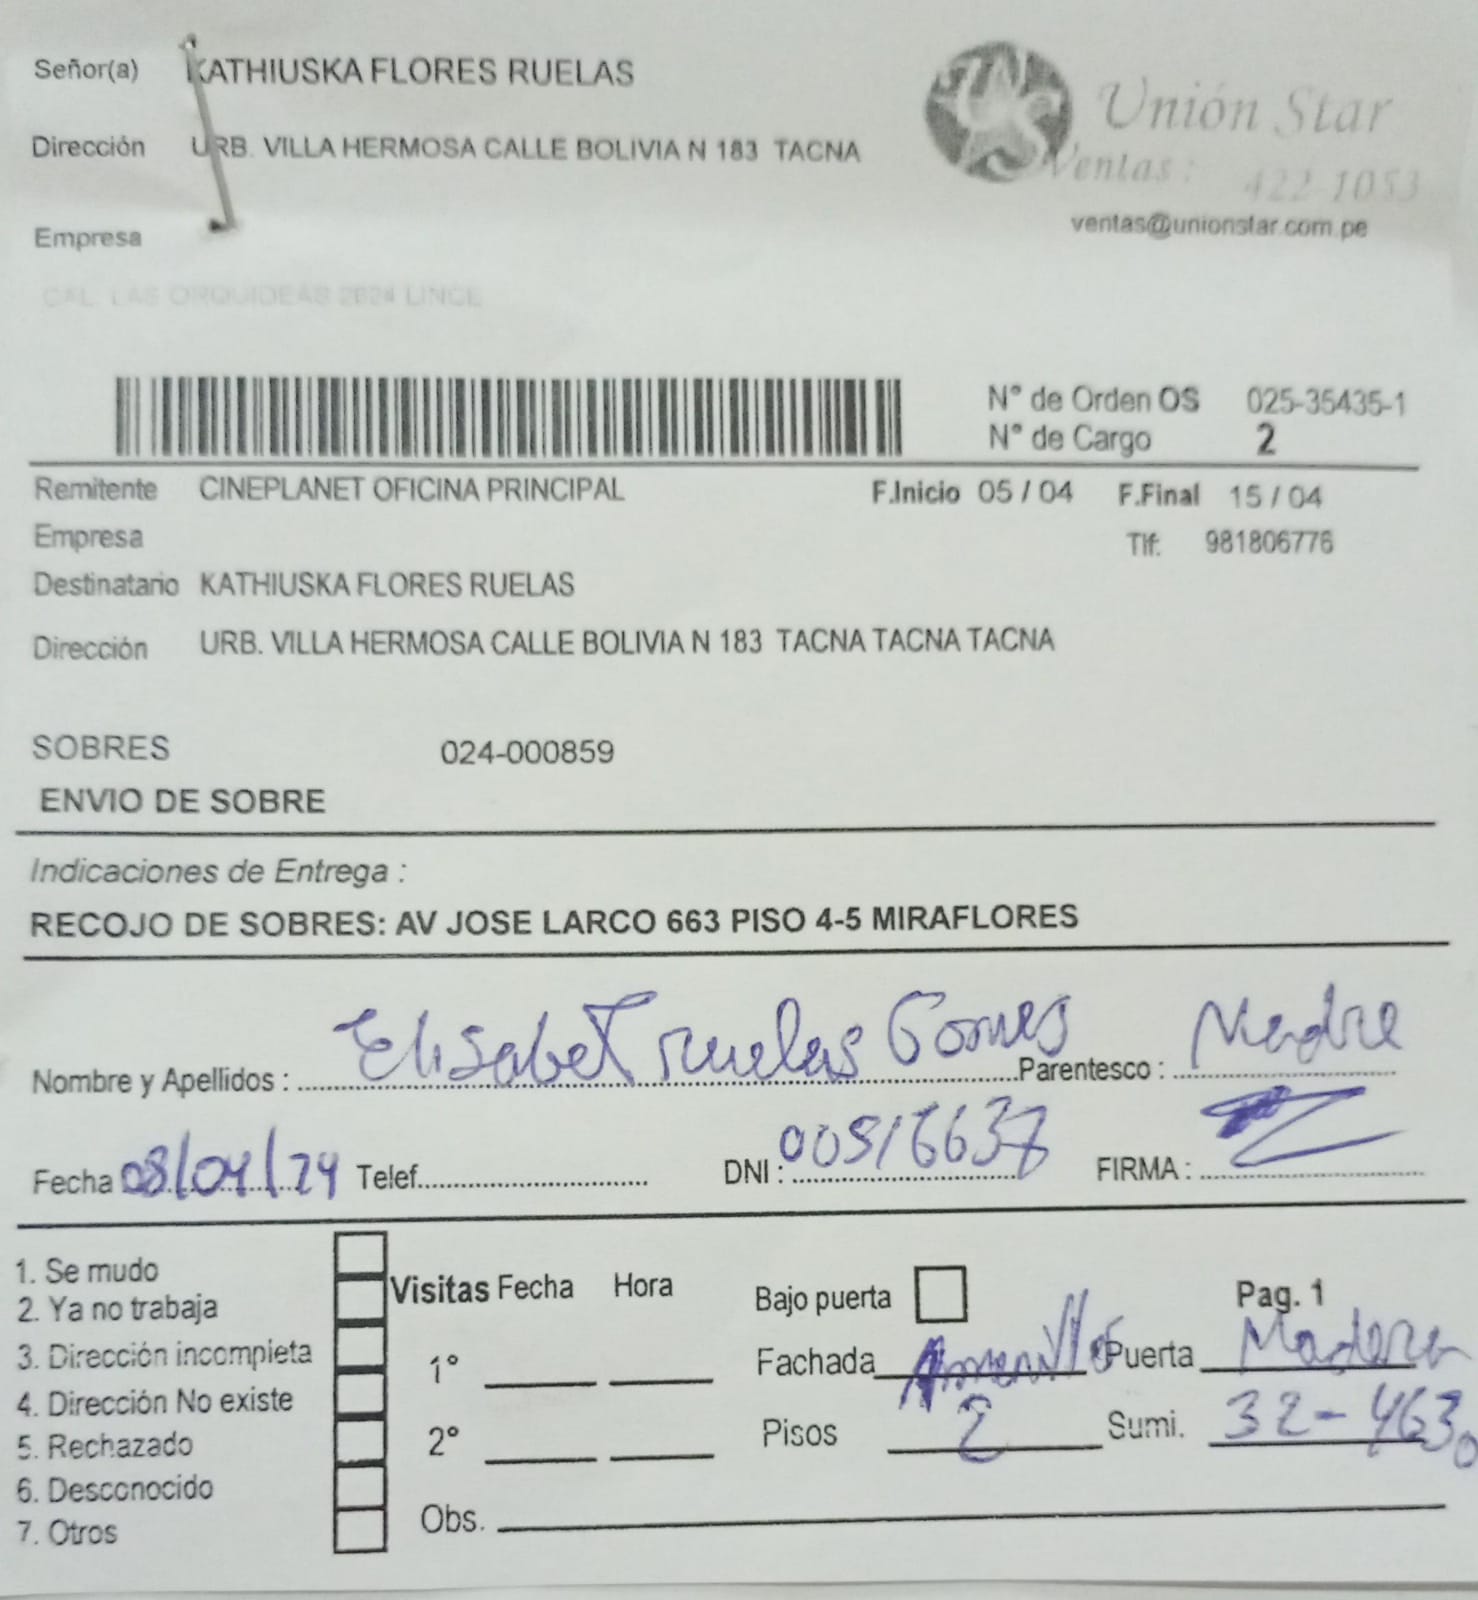 Señor(a) KATHIUSKA FLORES RUELAS
Dirección URB. VILLA HERMOSA CALLE BOLIVIA N 183 TACNA
Unión Star
Ventas: 422-1053
ventas@unionstar.com.pe
Empresa
CAL. LAS ORQUIDEAS 2624 LINCE
Nº de Orden OS 025-35435-1
Nº de Cargo 2
Remitente CINEPLANET OFICINA PRINCIPAL F.Inicio 05 / 04 F.Final 15 / 04
Empresa Tlf: 981806776
Destinatario KATHIUSKA FLORES RUELAS
Dirección URB. VILLA HERMOSA CALLE BOLIVIA N 183 TACNA TACNA TACNA
SOBRES 024-000859
ENVIO DE SOBRE
Indicaciones de Entrega :
RECOJO DE SOBRES: AV JOSE LARCO 663 PISO 4-5 MIRAFLORES
Nombre y Apellidos : Elisabet ruelas Gomes Parentesco : Madre
Fecha 08/04/24 Telef. DNI : 00516637 FIRMA :
1. Se mudo
2. Ya no trabaja
3. Dirección incompleta
4. Dirección No existe
5. Rechazado
6. Desconocido
7. Otros
Visitas Fecha Hora
1º
2º
Obs.
Bajo puerta Pag. 1
Fachada Amarillo Puerta Madera
Pisos 2 Sumi. 32-4630